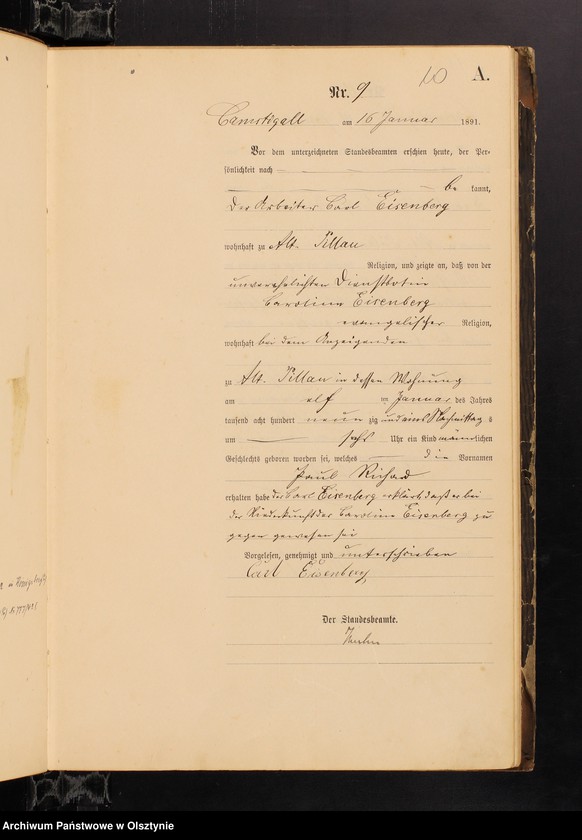 10 A.
Nr. 9
Camstigall am 16 Januar 1891.
Vor dem unterzeichneten Standesbeamten erschien heute, der Per-
sönlichkeit nach
be kannt,
der Arbeiter Carl Eisenberg
wohnhaft zu Alt. Pillau
Religion, und zeigte an, daß von der
unverehelichten Dienstbotin
Caroline Eisenberg
evangelischer Religion,
wohnhaft bei dem Anzeigenden
zu Alt. Pillau in dessen Wohnung
am elf ten Januar des Jahres
tausend acht hundert neun zig und eins Nachmittag s
um sechs Uhr ein Kind männlichen
Geschlechts geboren worden sei, welches die Vornamen
Paul Richard
erhalten habe der Carl Eisenberg erklärt, daß er bei
der Niederkunft der Caroline Eisenberg zu
gegen gewesen sei
Vorgelesen, genehmigt und unterschrieben
Carl Eisenberg
Der Standesbeamte.
Archiwum Państwowe w Olsztynie